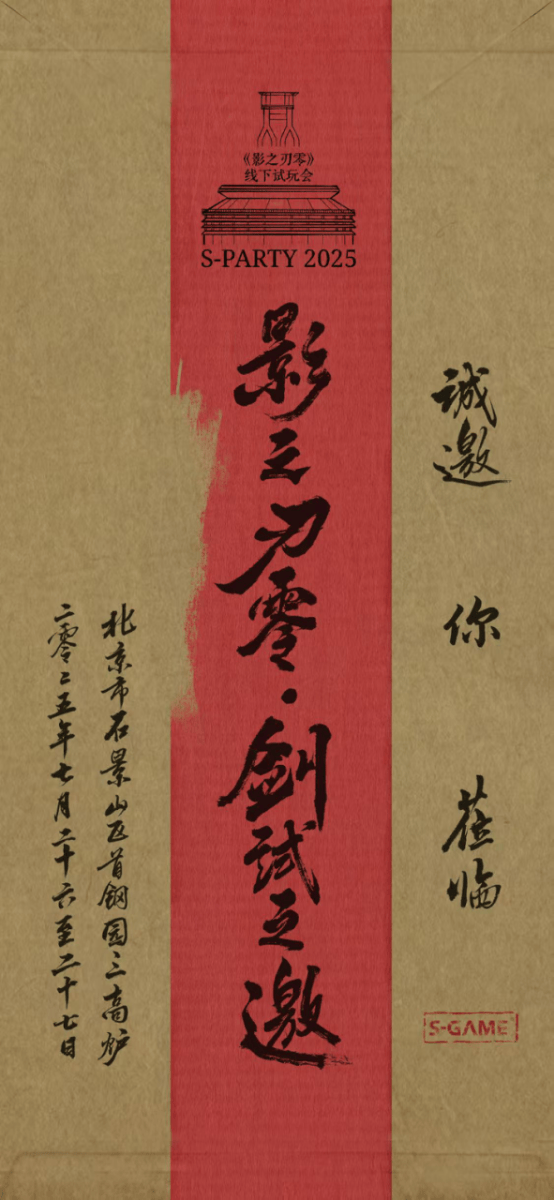 《影之刃零》
线下试玩会
S-PARTY 2025
诚邀
你
莅临
影之刃零·劍試之邀
北京市石景山区首鋼园三高炉
二零二五年七月二十六至二十七日
S-GAME